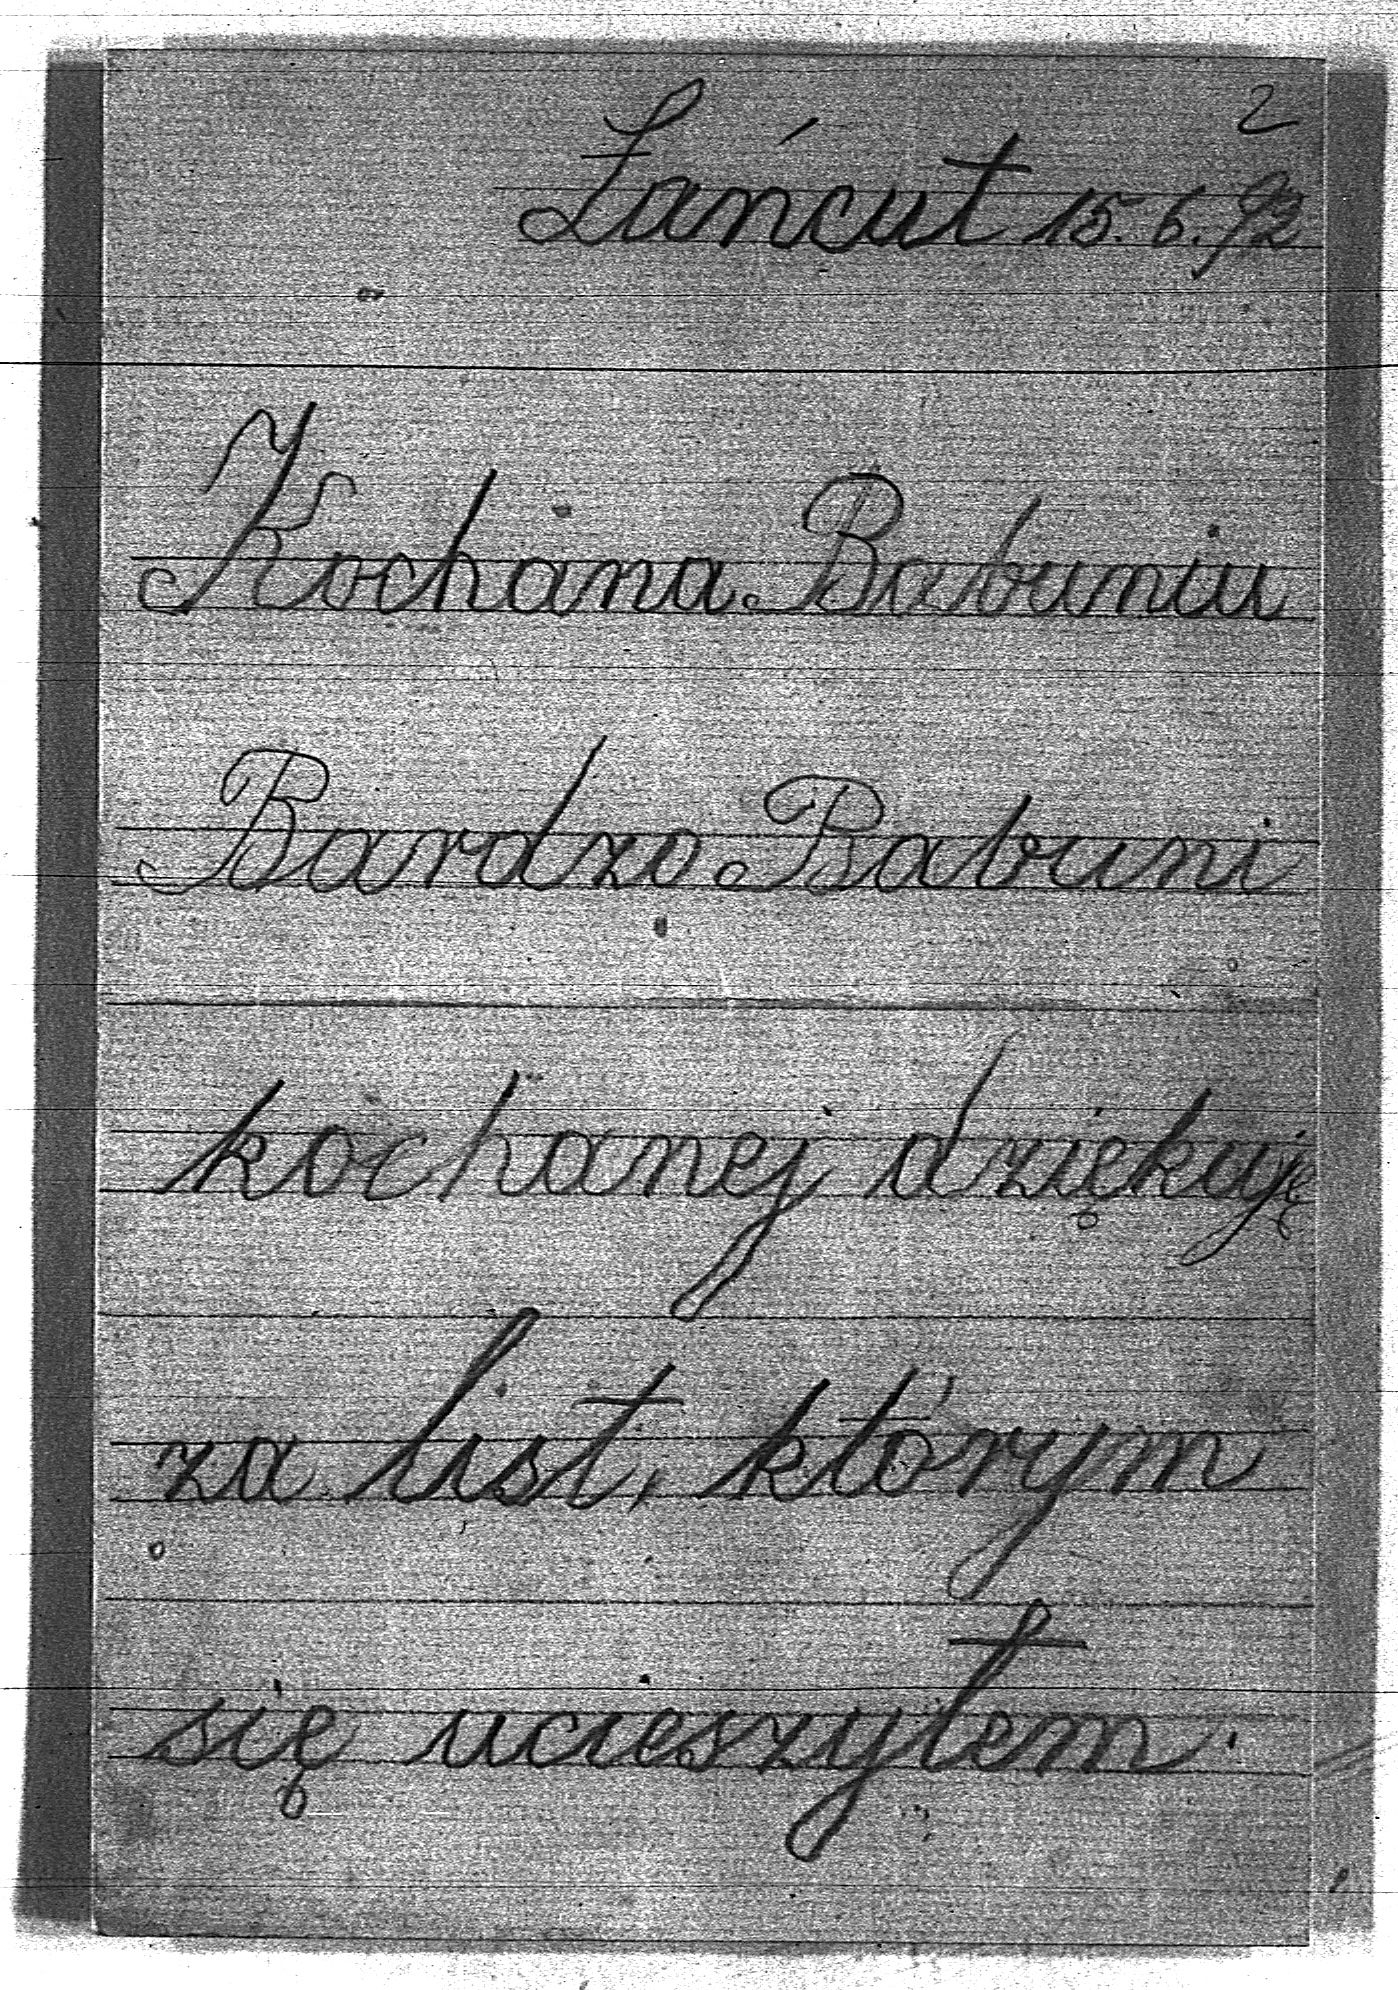 2
Łańcut 15. 6. 92
Kochana Babuniu
Bardzo Babuni
kochanej dziękuję
za list, którym
się ucieszyłem.